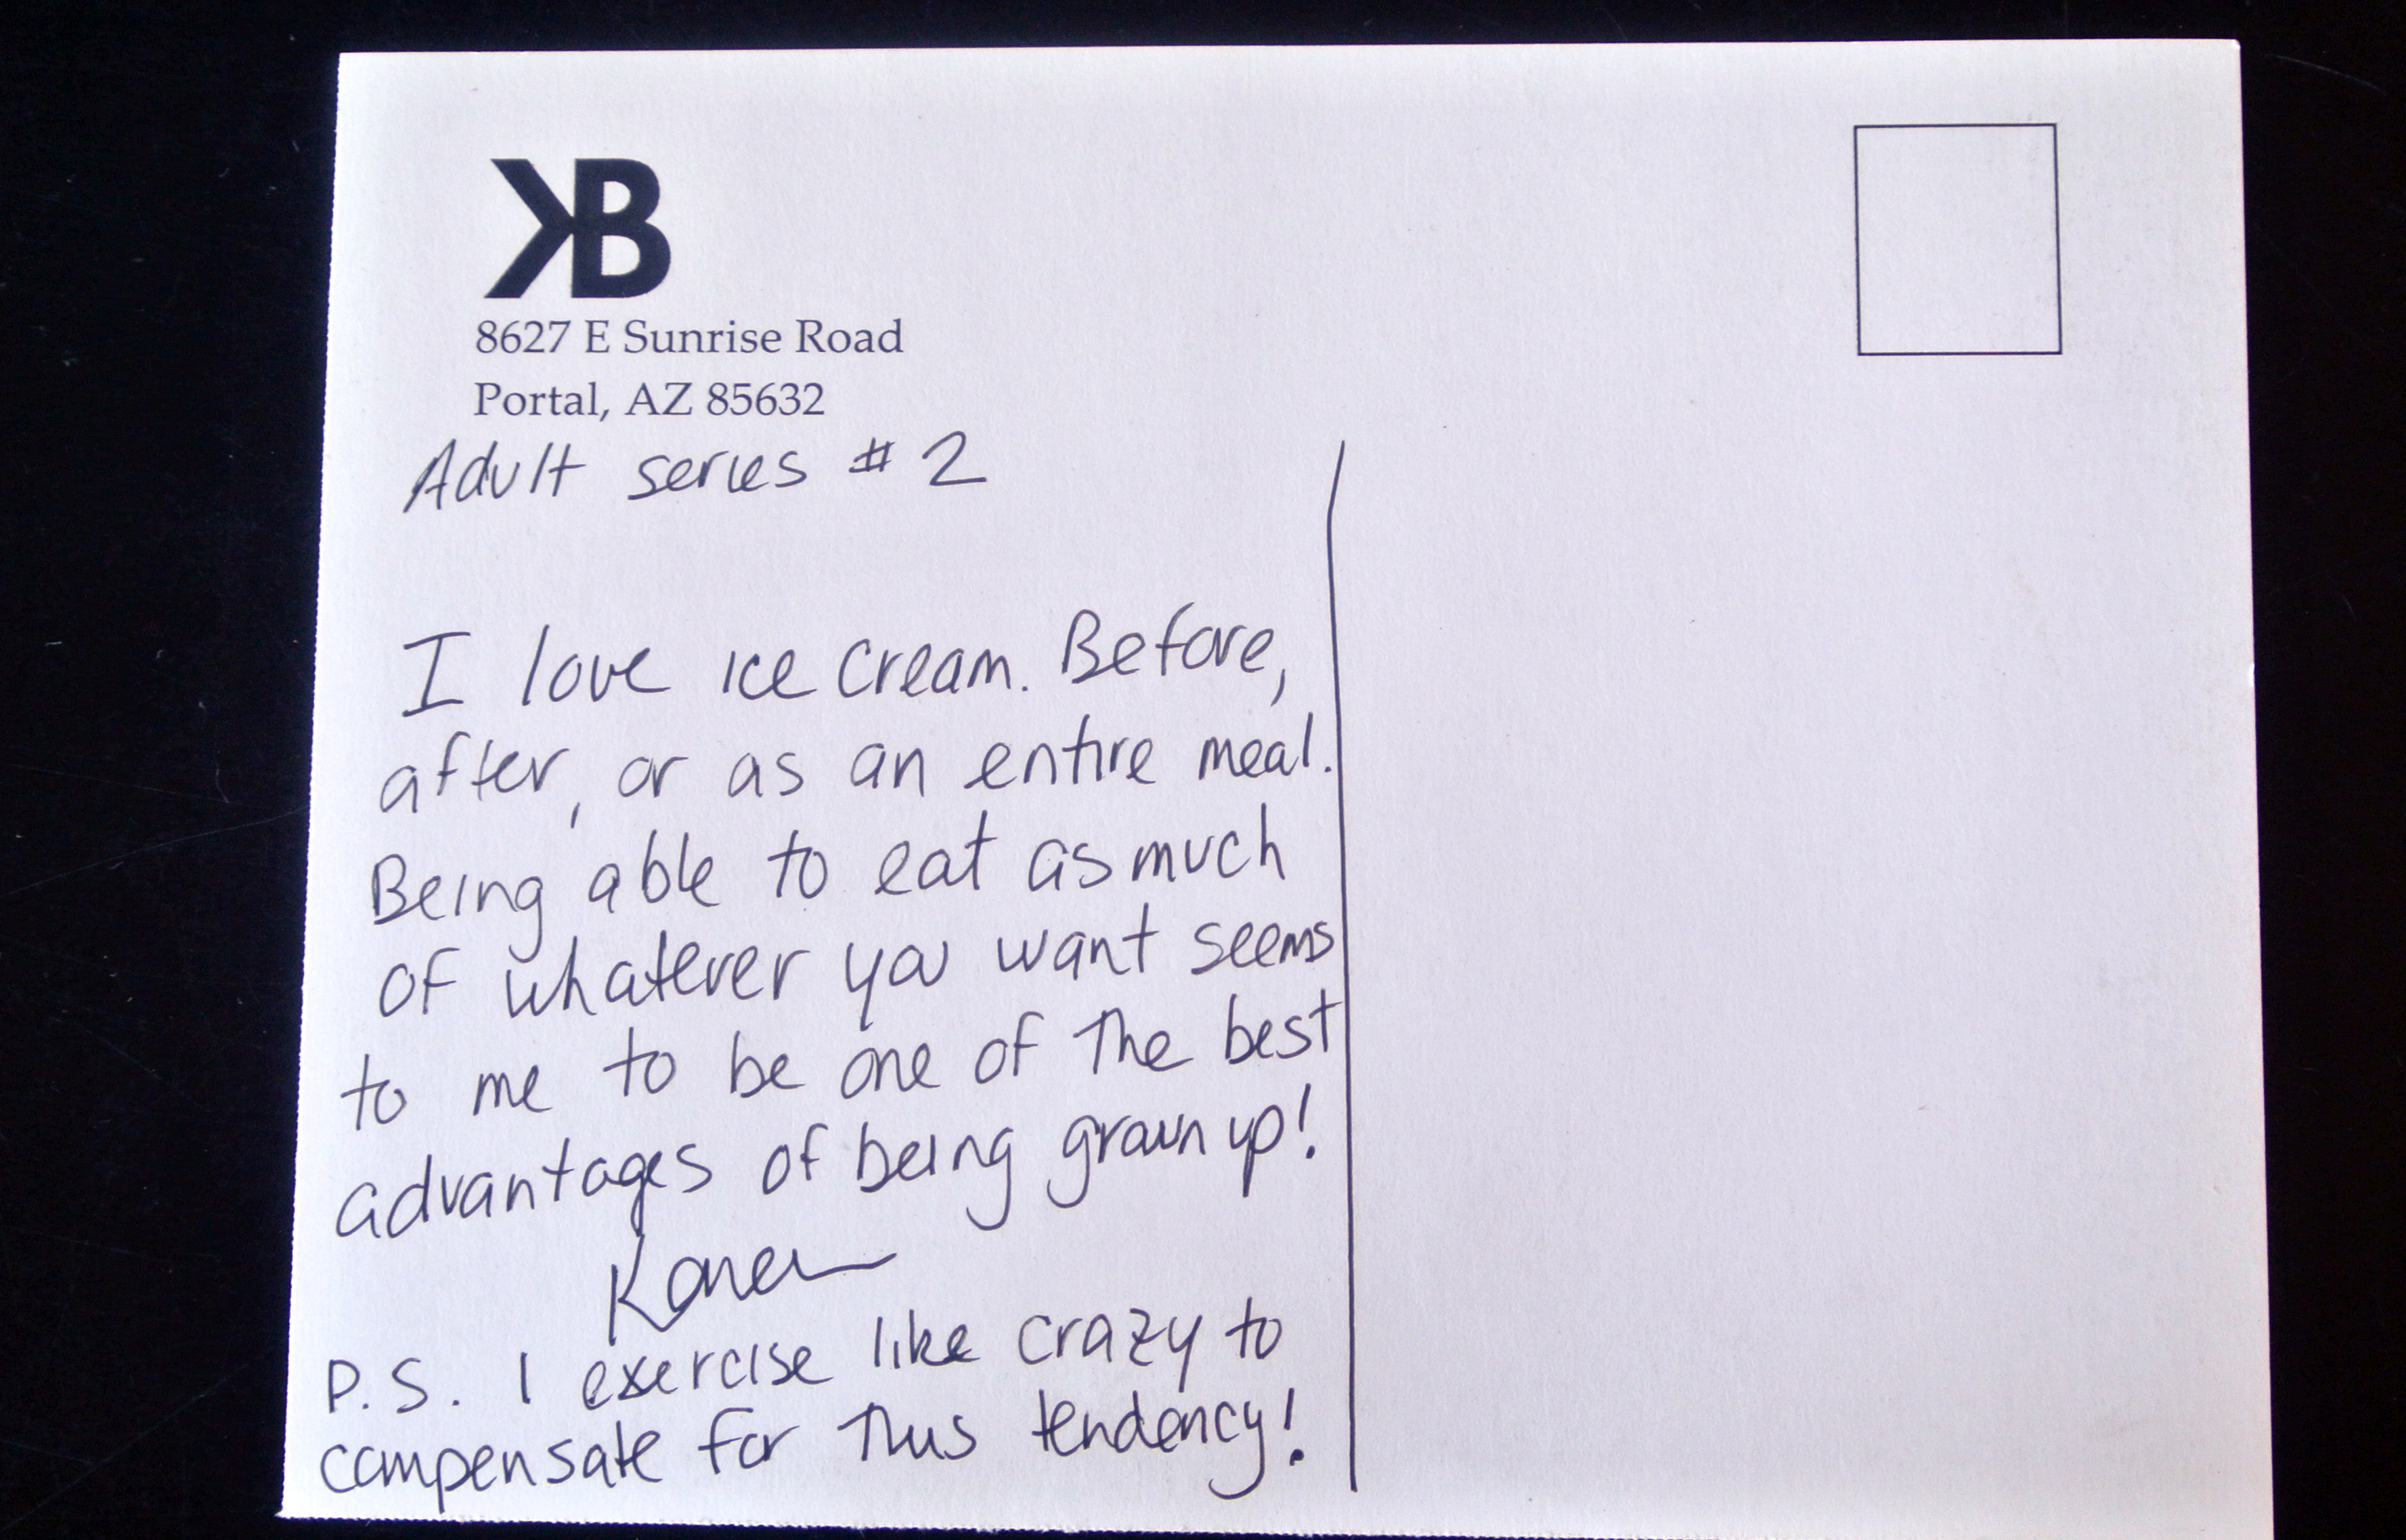 KB
8627 E Sunrise Road
Portal, AZ 85632
Adult series # 2
I love ice cream. Before,
after, or as an entire meal.
Being able to eat as much
of whatever you want seems
to me to be one of the best
advantages of being grown up!
Karen
P.S. I exercise like crazy to
compensate for this tendency!